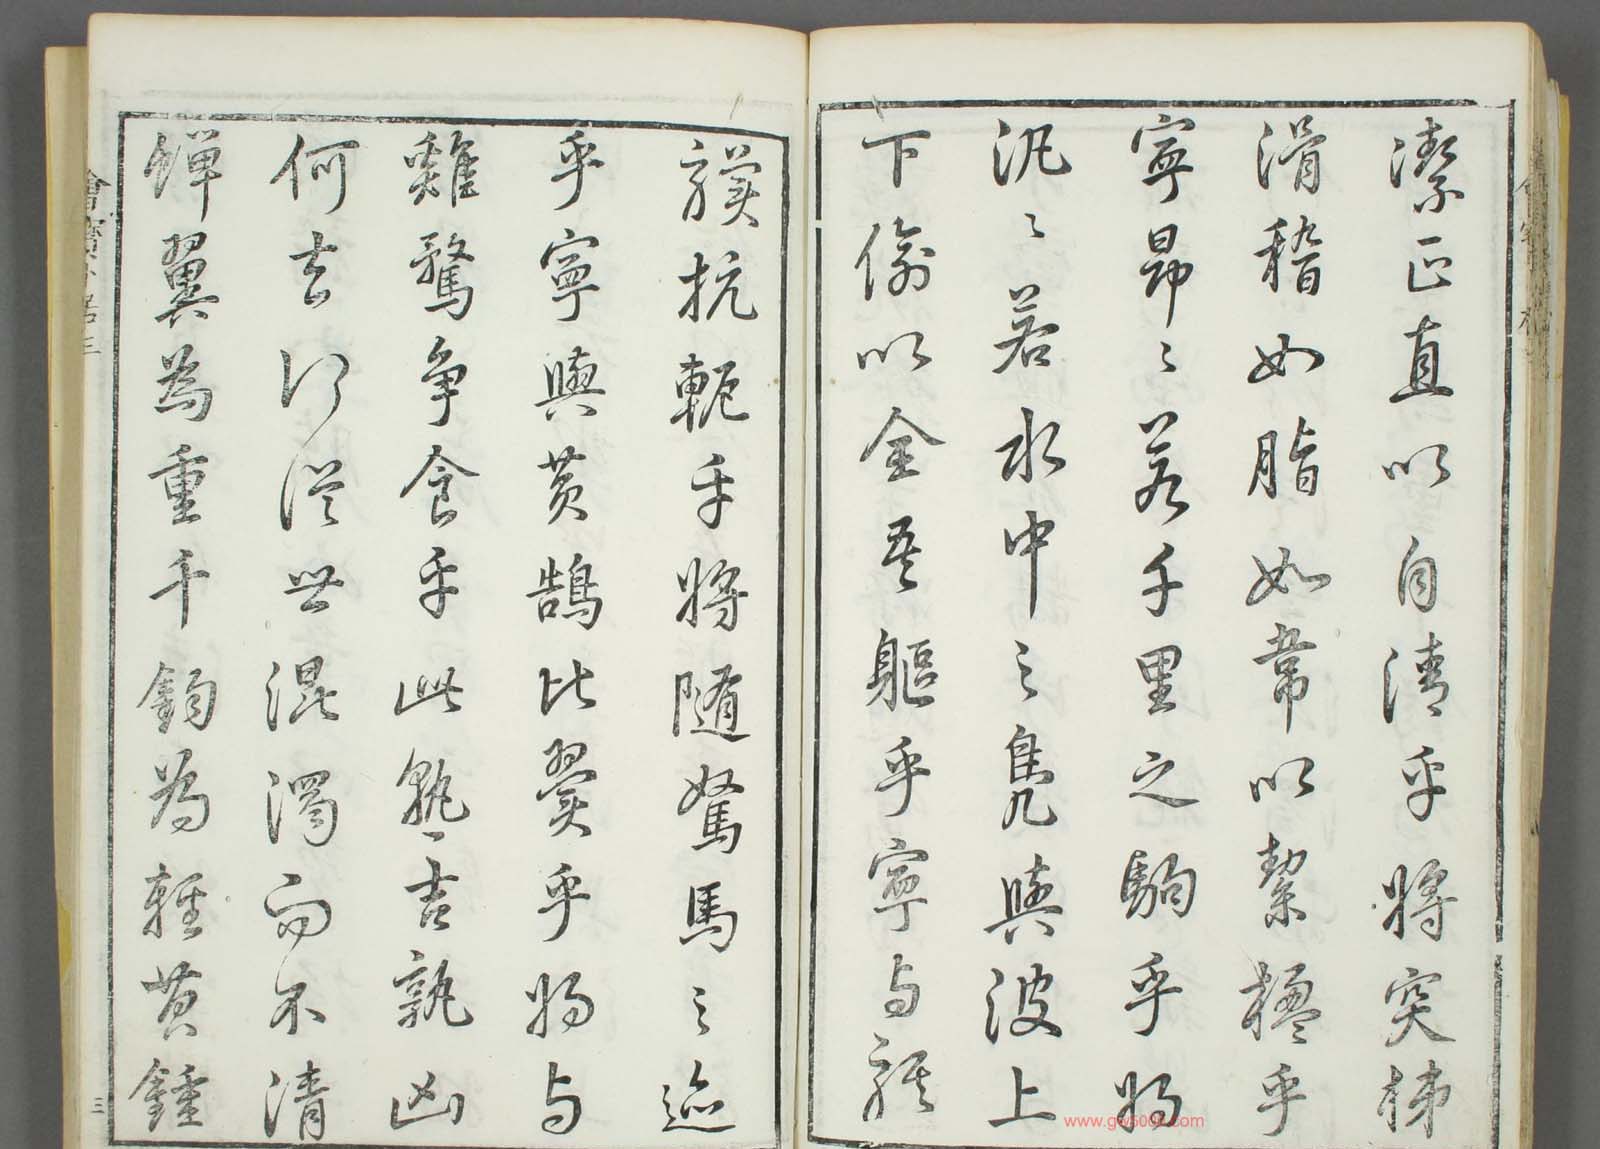 潔正直以自清乎將突梯
滑稽如脂如韋以絜楹乎
寧昂〻若千里之駒乎將
汎〻若水中之鳧與波上
下偷以全吾軀乎寧与騏
驥抗軛乎將隨駑馬之迹
乎寧與黃鵠比翼乎將与
雞鶩爭食乎此孰吉孰凶
何去何從世混濁而不清
蟬翼為重千鈞為輕黃鍾
三
www.g
.com